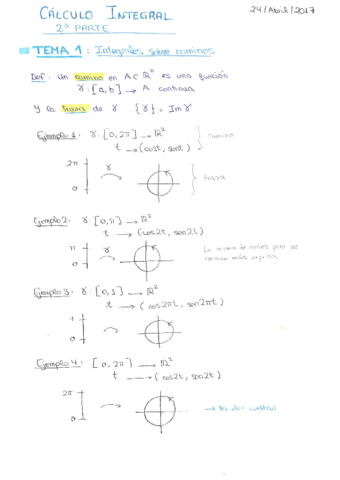 CÁLCULO INTEGRAL
2º PARTE
24/Abril/2017
TEMA 1: Integrales sobre caminos
Def: Un camino en A⊂ℝⁿ es una función
γ: [a,b] → A continua
Y la traza de γ {γ} = Im γ
Ejemplo 1: γ: [0, 2π] → ℝ²
t → (cost, sent)
camino
2π
0
γ
traza
Ejemplo 2: γ: [0, π] → ℝ²
t → (cos2t, sen2t)
π
0
γ
La misma de antes pero se
recorre más deprisa
Ejemplo 3: γ: [0, 1] → ℝ²
t → (cos2πt, sen2πt)
1
0
Ejemplo 4: [0, 2π] → ℝ²
t → (cos2t, sen2t)
2π
0
→ Da dos vueltas